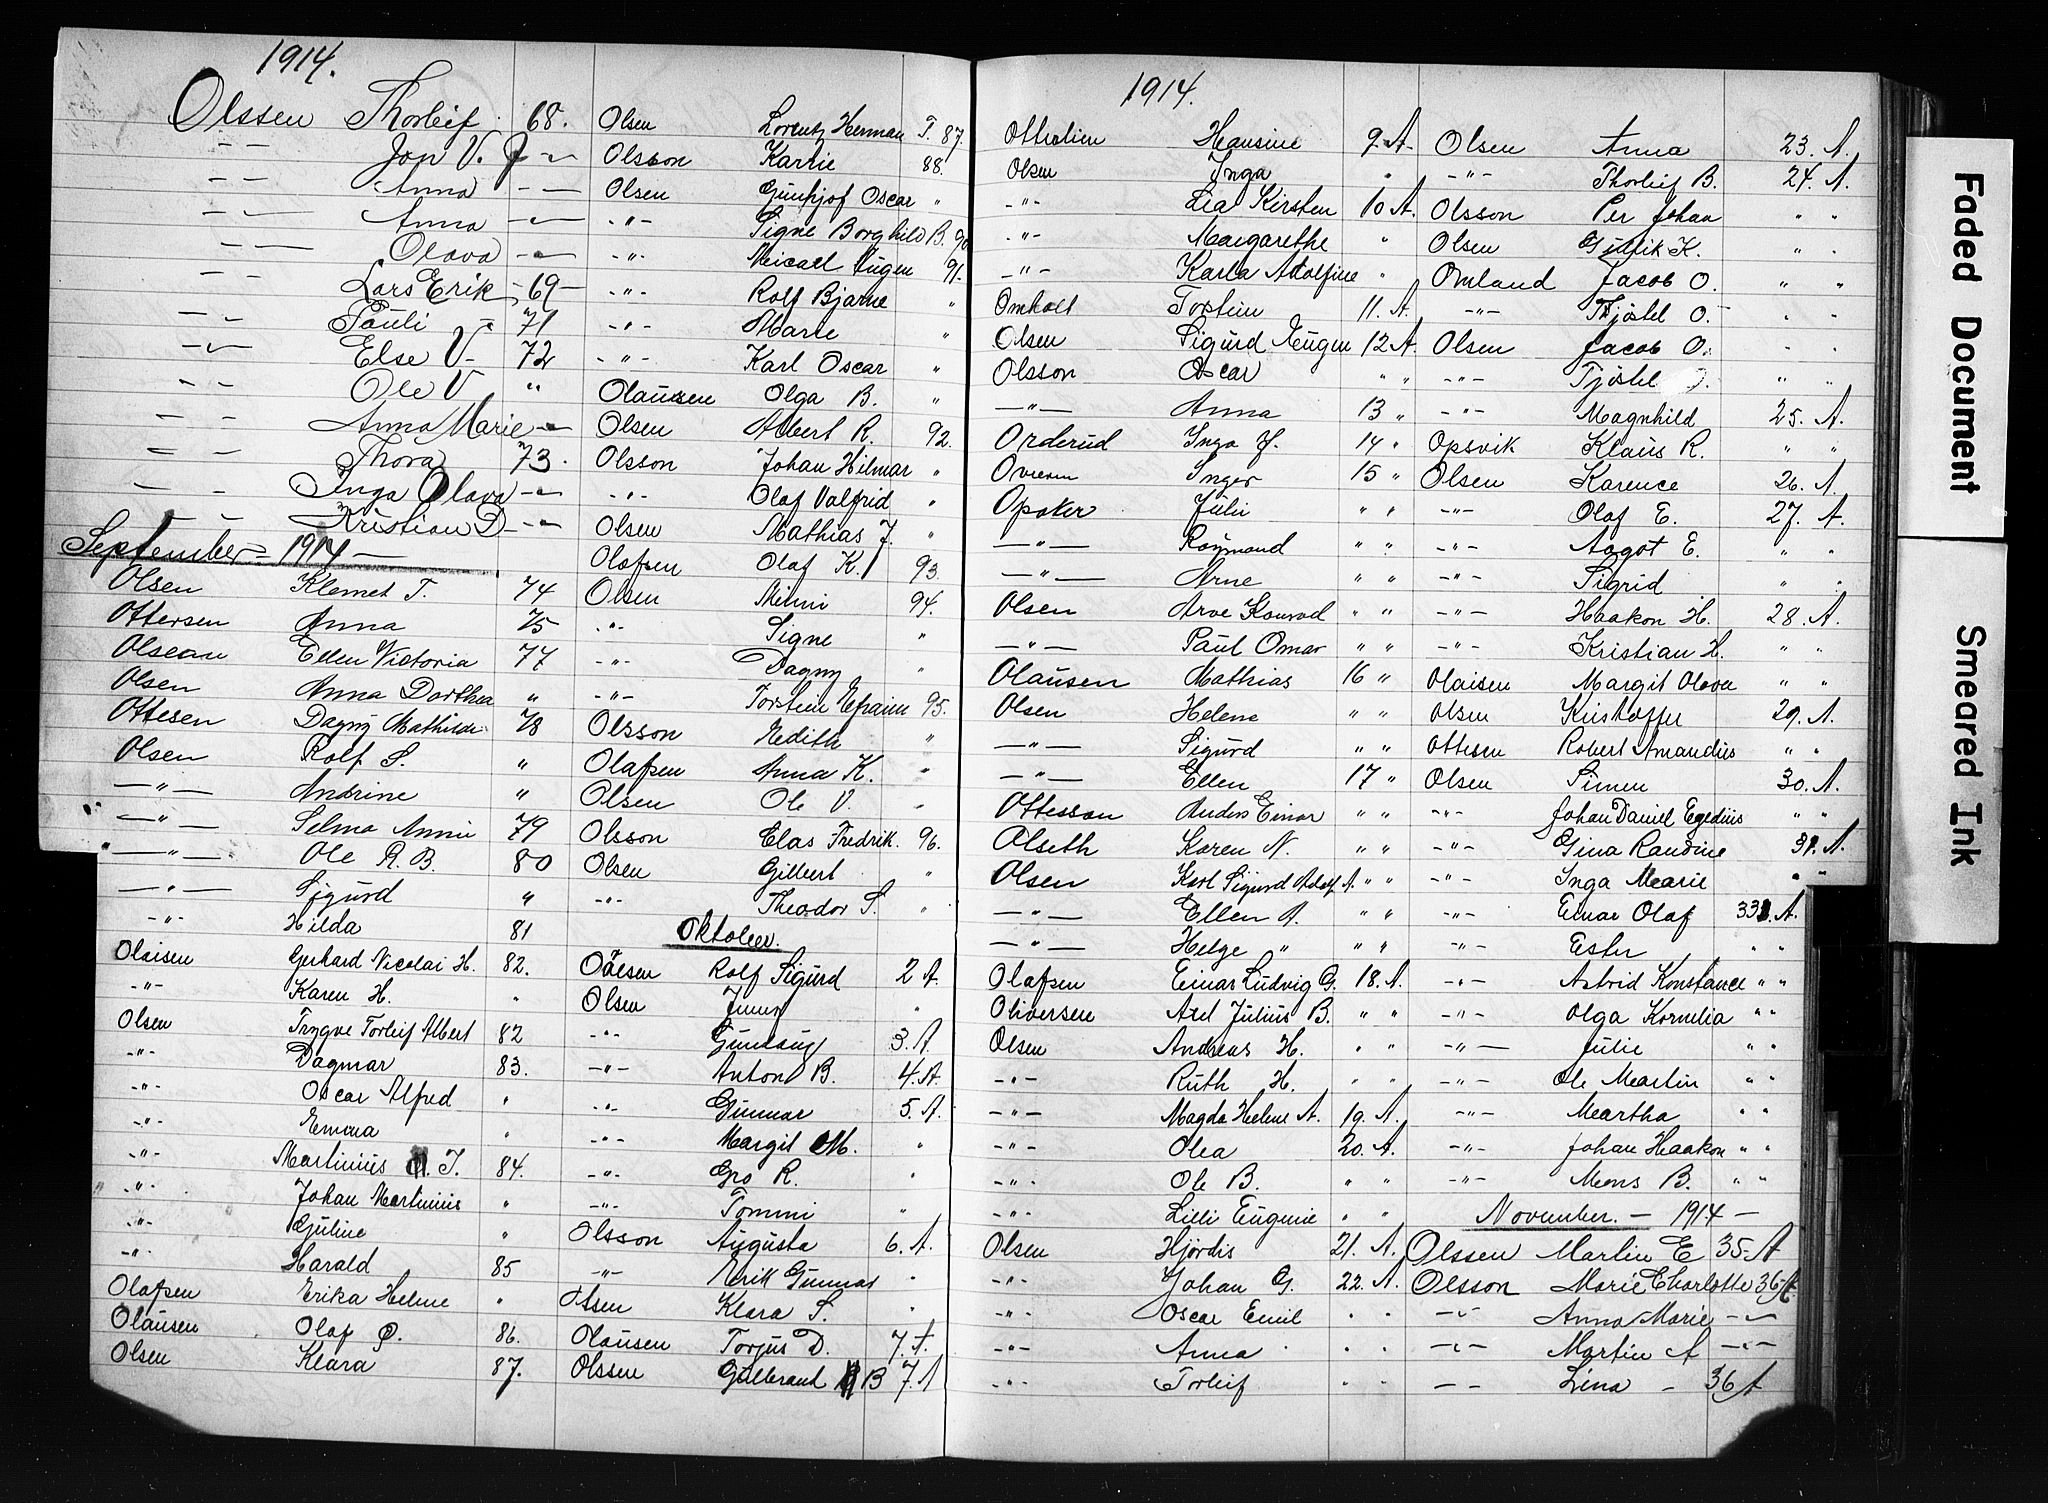 1914.
Olssen Thorleif 68.
— — Jon V. J — 〃 —
— — Anna — —
— — Anna — 〃 —
— — Olava — 〃 —
— — Lars Erik - 69 -
— — Pauli - 71
— — Else V - 72
— — Ole V 〃
— — Anna Marie — 〃 —
— — Thora 73.
— — Inga Olava — 〃 —
— — Kristian D — 〃 —
September - 1914 -
Olsen Klemet T. 74
Ottersen Anna 75
Olsean Ellen Victoria 77
Olsen Anna Dorthea 〃
Ottesen Dagny Mathilde 78
Olsen Rolf S. 〃
— 〃 — Andrine 〃
— 〃 — Selma Annie 79
— 〃 — Ole R. B. 80
— 〃 — Sigurd 〃
- 〃 - Hilda 81
Olaisen Gerhard Nicolai H. 82.
- 〃 - Karen H. 〃
Olsen Trygve Torleif Albert 82
- 〃 - Dagmar 83.
- 〃 - Oscar Alfred 〃
- 〃 - Emma 〃
- 〃 - Martinius T. 84.
- 〃 - Johan Martinius 〃
- 〃 - Gjuline 〃
- 〃 - Harald 85
Olafsen Erika Helene 〃
Olausen Olaf O. 86.
Olsen Klara 87.
Olsen Lorentz Herman T. 87.
Olsson Karrie 88.
Olsen Oscar 〃
- 〃 - Signe Borghild B. 90
- 〃 - Micael Eugen 91.
- 〃 - Rolf Bjarne 〃
- 〃 - Marie 〃
- 〃 - Karl Oscar 〃
Olaussen Olga B. 〃
Olsen Albert R. 92.
Olsson Johan Hilmar 〃
- 〃 - Olof Valfrid 〃
Olsen Mathias J. 〃
Olofsen Olaf K. 93.
Olsen Minni 94.
- 〃 - Signe 〃
- 〃 - Dagny 〃
- 〃 - Torstein Efraim 95.
Olsson Edith 〃
Olafsen Anna K. 〃
Olsen Ole V. 〃
Olsson Elas Fredrik. 96.
Olsen Gilbert 〃
- 〃 - Theodor S. 〃
Oktober.
Olsen Rolf Sigurd 2 A.
Olsen Jenny 〃
- 〃 - Gunlaug 3. A.
- 〃 - Anton B. 4. A.
- 〃 - Gunnar 5. A.
- 〃 - Margit M. 〃
- 〃 - Gro R. 〃
- 〃 - Tommi 〃
Olsson Augusta 6. A.
- 〃 - Erik Gunnar 〃
Olsen Klara S. 〃
Olausen Torjus D. 7. A.
Olssen Gulbrand B 7. A
1914.
Hansine 9. A.
Olsen Inga 〃
- 〃 - Lea Kirsten 10 A.
- 〃 - Margarethe 〃
- 〃 - Karla Adolfine 〃
Omholt Tostein 11. A.
Olsen Sigurd Eugen 12 A.
Olsson Oscar 〃 〃
— 〃 — Anna 13 〃
Orderud Inga J. 14 〃
Inger 15 〃
Opaker Juli 〃 〃
— 〃 — Raymond 〃 〃
— 〃 — Arne 〃 〃
Olsen Arve Konrad 〃 〃
— 〃 — Paul Omar 〃 〃
Olausen Mathias 16 〃
Olsen Helene 〃 〃
— 〃 — Sigurd 〃 〃
— 〃 — Ellen 17 〃
Ottesson Anders Einar 〃 〃
Olseth Karen N. 〃 〃
Olsen Karl Sigurd Adolf A. 〃 〃
— 〃 — Ellen A. 〃 〃
— 〃 — Helge 〃 〃 〃
Olafsen Einar Ludvig G. 18. A.
Oliversen Axel Julius B. 〃 〃
Olsen Andreas H. 〃 〃
- 〃 - Ruth H. 〃 〃
- 〃 - Magda Helene A. 19. A.
- 〃 - Olea 20. A.
- 〃 - Ole B. 〃 〃
Lilli Eugenie 〃 〃
Olsen Hjördis 21. A.
- 〃 - Johan G. 22. A.
- 〃 - Oscar Emil 〃 〃
- 〃 - Anna 〃 〃
- 〃 - Torleif 〃 〃
Olsen Anna 23. A.
- 〃 - Thorleif B. 24. A.
Olsson Per Johan 〃 〃
Olsen Gullik K. 〃 〃
Omland Jacob O. 〃 〃
- 〃 - Tjöstel O. 〃 〃
Olsen Jacob O. 〃 〃
- 〃 - Tjöstel O. 〃 〃
- 〃 - Magnhild 25. A.
Opsvik Klaus R. 〃 〃
Olsen Karence 26. A.
- 〃 - Olaf E. 27. A.
- 〃 - Aagot E. 〃 〃
- 〃 - Sigrid 〃 〃
- 〃 - Haakon H. 28. A.
- 〃 - Kristian H. 〃 〃
Olaisen Margit Olava 〃 〃
Olsen Kristoffer 29. A.
Ottesen Robert Amandus 〃 〃
Olsen Simen 30. A.
- 〃 - Johan Daniel Egedius 〃 〃
- 〃 - Gina Randine 31. A.
- 〃 - Inga Marie 〃 〃
- 〃 - Einar Olaf 33. A.
- 〃 - Ester 〃 〃
- 〃 - Astrid Konstance 〃 〃
- 〃 - Olga Kornelia 〃 〃
- 〃 - Julie 〃 〃
- 〃 - Ole Martin 〃 〃
- 〃 - Martha 〃 〃
- 〃 - Johan Haakon 〃 〃
- 〃 - Mons B. 〃 〃
November. - 1914 -
Olssen Martin E 35. A
Olsson Marie Charlotte 36. A
- 〃 - Anna Marie - 〃 -
- 〃 - Martin A - 〃 -
— — Lina - 36 A
Faded Document
Smeared Ink